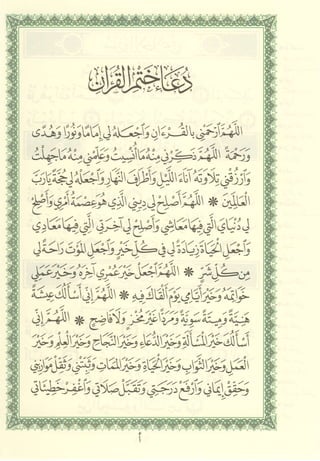 دُعَاءُ خَتْمِ الْقُرْآنِ
اللَّهُمَّ ارْحَمْنِي بِالْقُرْءَانِ وَاجْعَلْهُ لِي إِمَامًا وَنُورًا وَهُدًى
وَرَحْمَةً اللَّهُمَّ ذَكِّرْنِي مِنْهُ مَا نَسِيتُ وَعَلِّمْنِي مِنْهُ مَا جَهِلْتُ
وَارْزُقْنِي تِلَاوَتَهُ آنَاءَ اللَّيْلِ وَأَطْرَافَ النَّهَارِ وَاجْعَلْهُ لِي حُجَّةً يَارَبَّ
الْعَالَمِينَ * اللَّهُمَّ أَصْلِحْ لِي دِينِي الَّذِي هُوَ عِصْمَةُ أَمْرِي وَأَصْلِحْ
لِي دُنْيَايَ الَّتِي فِيهَا مَعَاشِي وَأَصْلِحْ لِي آخِرَتِي الَّتِي فِيهَا مَعَادِي
وَاجْعَلِ الْحَيَاةَ زِيَادَةً لِي فِي كُلِّ خَيْرٍ وَاجْعَلِ الْمَوْتَ رَاحَةً لِي
مِنْ كُلِّ شَرٍّ * اللَّهُمَّ اجْعَلْ خَيْرَ عُمْرِي آخِرَهُ وَخَيْرَ عَمَلِي
خَوَاتِمَهُ وَخَيْرَ أَيَّامِي يَوْمَ أَلْقَاكَ فِيهِ * اللَّهُمَّ إِنِّي أَسْأَلُكَ عِيشَةً
هَنِيَّةً وَمِيتَةً سَوِيَّةً وَمَرَدًّا غَيْرَ مُخْزٍ وَلَا فَاضِحٍ * اللَّهُمَّ إِنِّي
أَسْأَلُكَ خَيْرَ الْمَسْأَلَةِ وَخَيْرَ الدُّعَاءِ وَخَيْرَ النَّجَاحِ وَخَيْرَ الْعِلْمِ وَخَيْرَ
الْعَمَلِ وَخَيْرَ الثَّوَابِ وَخَيْرَ الْحَيَاةِ وَخَيْرَ الْمَمَاتِ وَثَبِّتْنِي وَثَقِّلْ مَوَازِينِي
وَحَقِّقْ إِيمَانِي وَارْفَعْ دَرَجَتِي وَتَقَبَّلْ صَلَاتِي وَاغْفِرْ خَطِيئَاتِي
أ